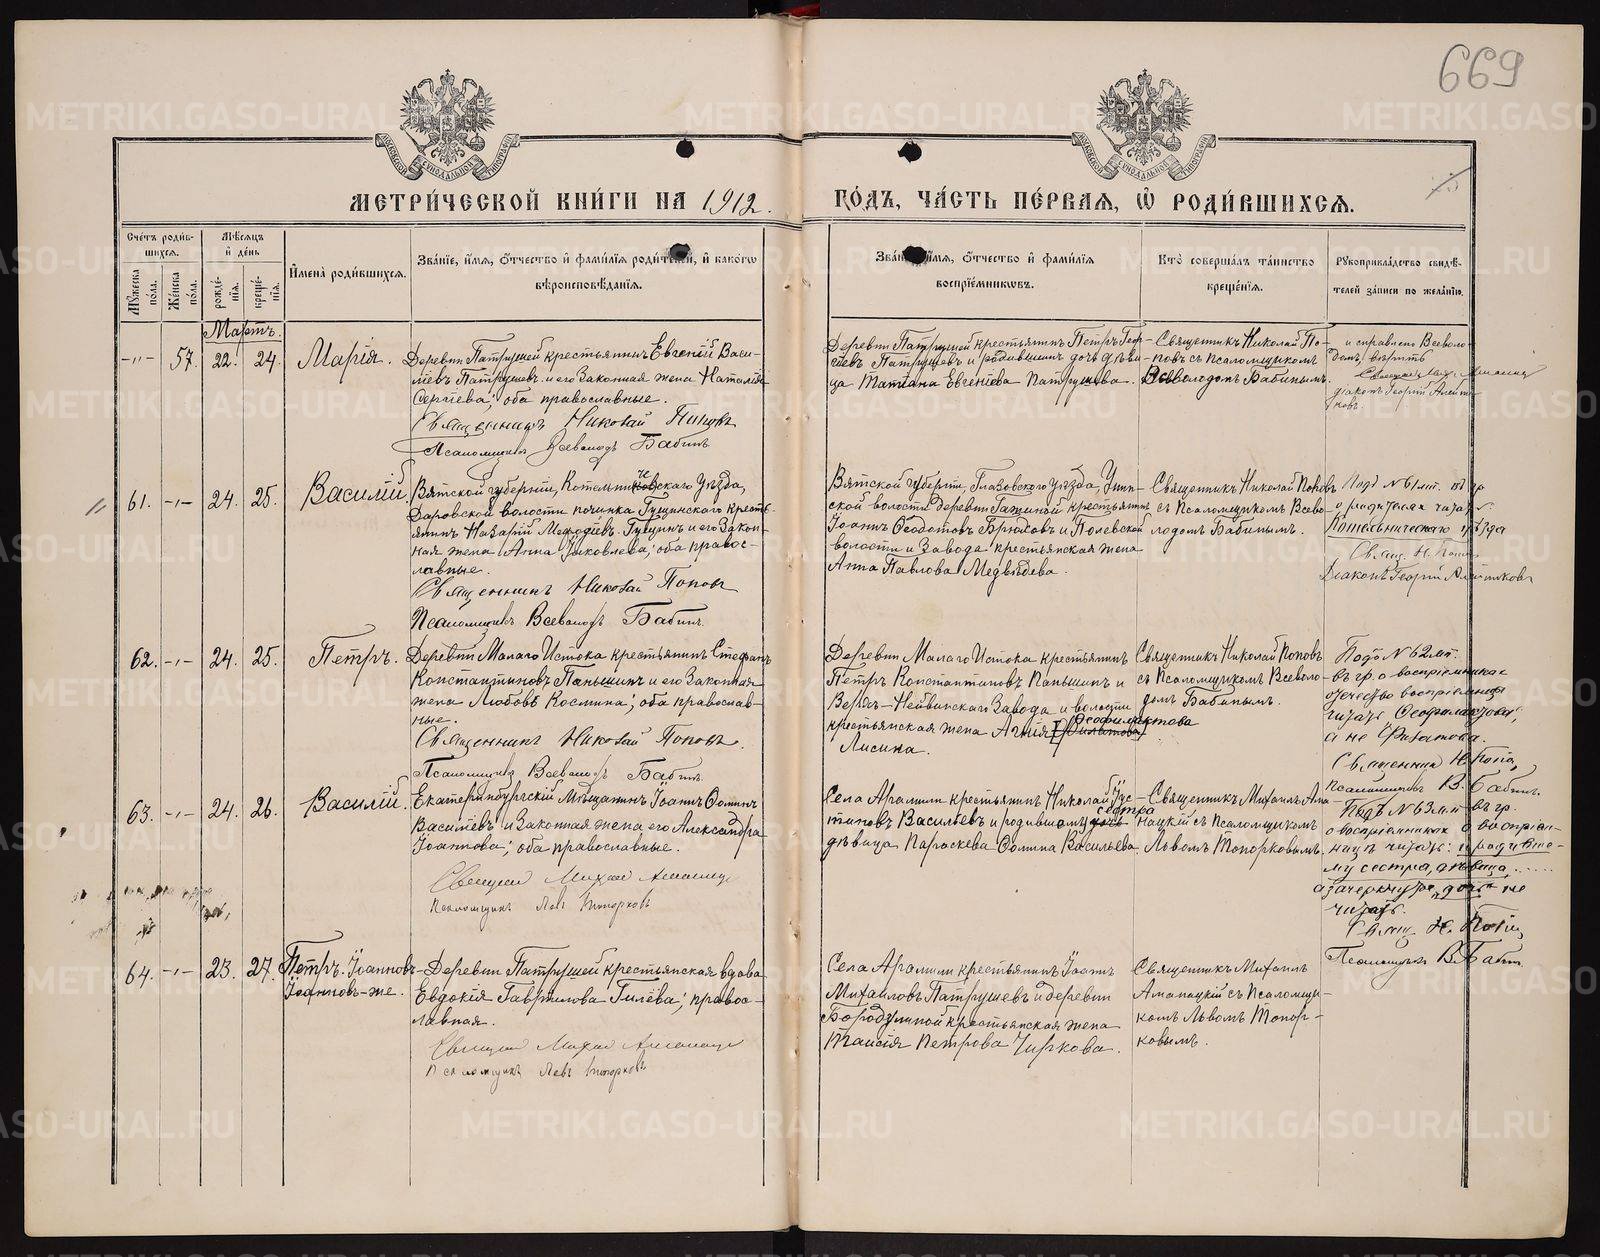 669
МЕТРИ́ЧЕСКОЙ КНИ́ГИ НА 1912.
ГО́ДЪ, ЧА́СТЬ ПЕ́РВАЯ, Ѡ РОДИ́ВШИХСЯ.
Сче́тъ роди́в-
шихся.
Му́жеска пола.
Же́нска по́ла.
Мѣ́сяцъ
и де́нь
рожде́-
нія.
креще́-
нія.
И҆мена̀ роди́вшихся.
Зва́ніе, и́мя, о́тчество и фами́лія роди́телей, и како́гѡ
вѣроисповѣ́данія.
Зва́ніе, и́мя, о́тчество и фами́лія
воспріе́мниковъ.
Кто̀ соверша́лъ та́инство
креще́нія.
Рукоприкла́дство свидѣ́-
телей за́писи по жела́нію.
Мартъ.
-„- 57. 22. 24. Марія.
Деревни Патрушей крестьянинъ Евгеній Васи-
ліевъ Патрушевъ и его законная жена Наталія
Сергіева; оба православные.
Священникъ Николай Поповъ
Псаломщикъ Всеволодъ Бабинъ
Деревни Патрушей крестьянинъ Петръ Геор-
гіевъ Патрушевъ и родившимъ дочь дѣви-
ца Татіана Евгеніева Патрушева.
Священникъ Николай По-
повъ съ псаломщикомъ
Всеволодомъ Бабинымъ.
и справлено Всеволо-
домъ, вѣрить
діаконъ Георгій
61. -„- 24. 25. Василій.
Вятской губерніи, Котельническаго уѣзда,
Даровской волости починка Гущинскаго кресть-
янинъ Назарій Меѳодіевъ Гущинъ и его закон-
ная жена Анна Яковлева; оба правос-
лавные.
Священникъ Николай Поповъ
Псаломщикъ Всеволодъ Бабинъ.
Вятской губерніи, Глазовскаго уѣзда,
ской волости деревни крестьянинъ
Іоаннъ Ѳеодотовъ Брюховъ и Полевской
волости и завода крестьянская жена
Анна Павлова Медвѣдева.
Священникъ Николай Поповъ
съ Псаломщикомъ Всево-
лодомъ Бабинымъ.
Подъ № 61 мп. въ гр.
о родителяхъ читать
Котельническаго уѣзда
Свящ. Н. Поповъ
Діаконъ Георгій
62. -„- 24. 25. Петръ.
Деревни Малаго Истока крестьянинъ Стефанъ
Константиновъ Паньшинъ и его законная
жена Любовь Космина; оба православ-
ные.
Священникъ Николай Поповъ.
Псаломщикъ Всеволодъ Бабинъ.
Деревни Малаго Истока крестьянинъ
Петръ Константиновъ Паньшинъ и
Верхъ-Нейвинскаго завода и волости
крестьянская жена Агнія (Филатова) Ѳеофилактова
Лисина.
Священникъ Николай Поповъ
съ Псаломщикомъ Всеволо-
домъ Бабинымъ.
Подъ № 62 мп.
въ гр. о воспріемникахъ
отчество воспріемницы
читать Ѳеофилактова,
а не Филатова.
Священникъ Н. Поповъ
Псаломщикъ В. Бабинъ.
63. -„- 24. 26. Василій.
Екатеринбургскій мѣщанинъ Іоаннъ Ѳоминъ
Василіевъ и законная жена его Александра
Іоаннова; оба православные.
Священникъ Михаилъ
Псаломщикъ Левъ Топорковъ
Села Арамили крестьянинъ Николай Іус-
тиновъ Васильевъ и родившему дочь сестра
дѣвица Параскева Ѳомина Васильева.
Священникъ Михаилъ Ама-
нацкій съ Псаломщикомъ
Львомъ Топорковымъ.
Подъ № 63 мп въ гр.
о воспріемникахъ о воспріем-
ницѣ читать: и родивше-
му сестра, дѣвица, ......
а зачеркнутое „дочь“ не
читать.
Свящ. Н. Поповъ
Псаломщикъ В. Бабинъ
64. -„- 23. 27. Петръ. Іоанновъ-
Іоанновъ-же.
Деревни Патрушей крестьянская вдова
Евдокія Гаврилова Гилева; правос-
лавная.
Священникъ Михаилъ
Псаломщикъ Левъ Топорковъ
Села Арамили крестьянинъ Іоаннъ
Михаиловъ Патрушевъ и деревни
Бородулиной крестьянская жена
Таисія Петрова Чиркова.
Священникъ Михаилъ
Аманацкій съ Псаломщи-
комъ Львомъ Топор-
ковымъ.
METRIKI.GASO-URAL.RU